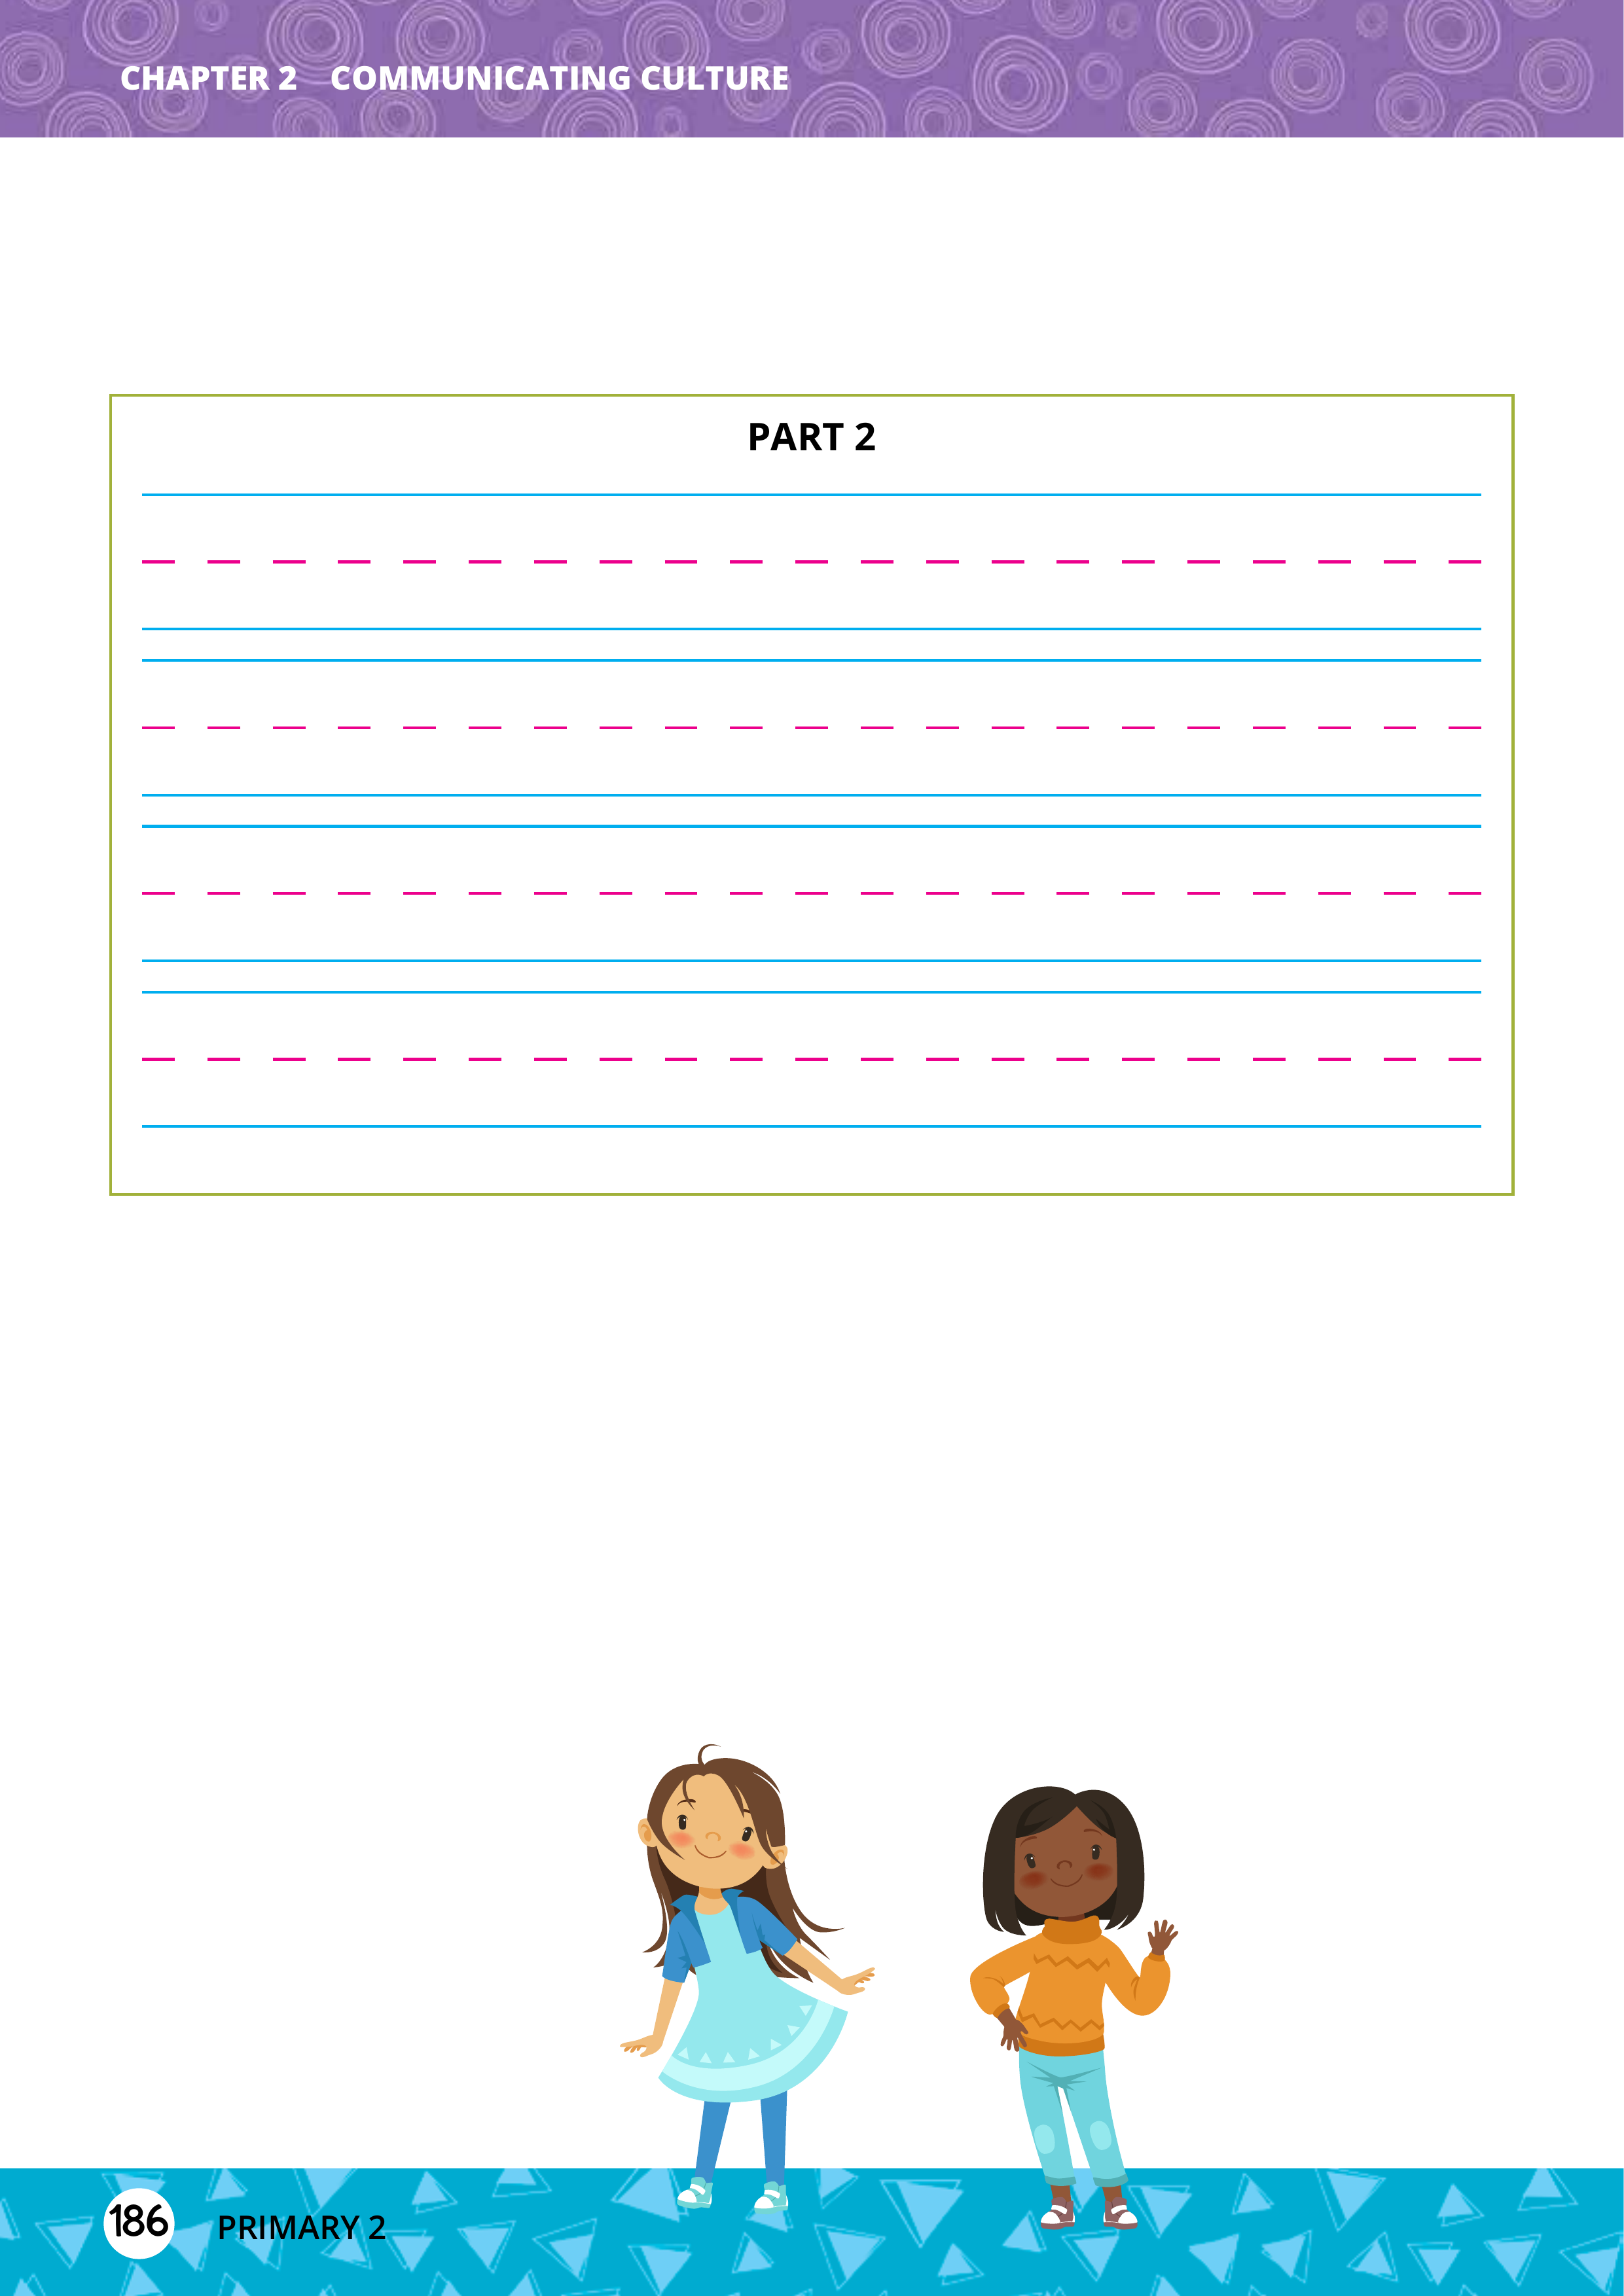 CHAPTER 2 COMMUNICATING CULTURE
PART 2
186 PRIMARY 2